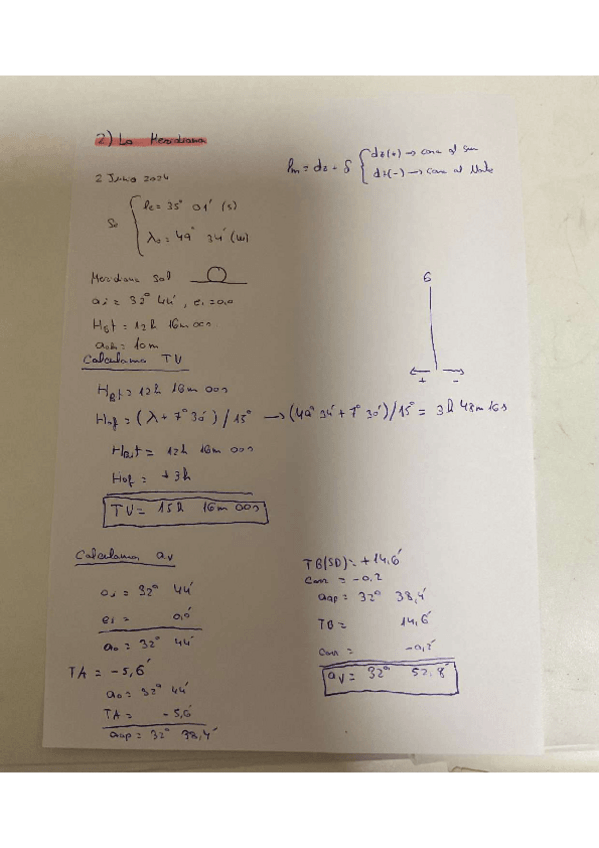 2) La Meridiana
lm = dz + δ { dz(+) → cara al sur
dz(-) → cara al Norte
2 Junio 2024
Se { le = 35° 01' (s)
λo = 49° 34' (w)
Meridiana Sol
ai = 32° 44', ei = 0,0
HBt = 12h 16m 00s
aoh = 10m
Calculamos TU
G
+ -
HBt = 12h 16m 00s
Hof = (λ + 7° 30') / 15° → (49° 34' + 7° 30') / 15° = 3h 48m 16s
HBt = 12h 16m 00s
Hof = +3h
TU = 15h 16m 00s
Calculamos av
ai = 32° 44'
ei = 0,0'
ao = 32° 44'
TA = -5,6'
ao = 32° 44'
TA = -5,6
aap = 32° 38,4'
TB(SD) = +14,6'
Corr = -0,2
aap = 32° 38,4'
TB = 14,6'
Corr = -0,2'
av = 32° 52,8'